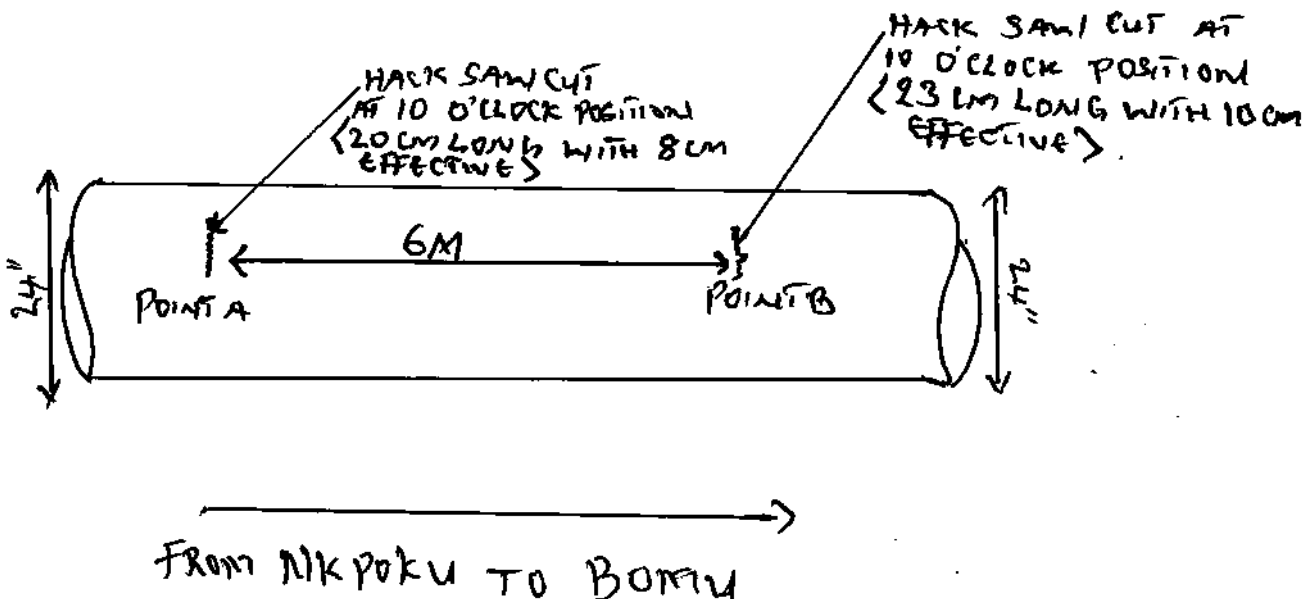 HACK SAW CUT
AT 10 O'CLOCK POSITION
<20 CM LONG WITH 8 CM
EFFECTIVE>
HACK SAW CUT AT
10 O'CLOCK POSITION
<23 CM LONG WITH 10 CM
EFFECTIVE>
24"
6M
24"
POINT A
POINT B
FROM NKPOKU TO BOMU